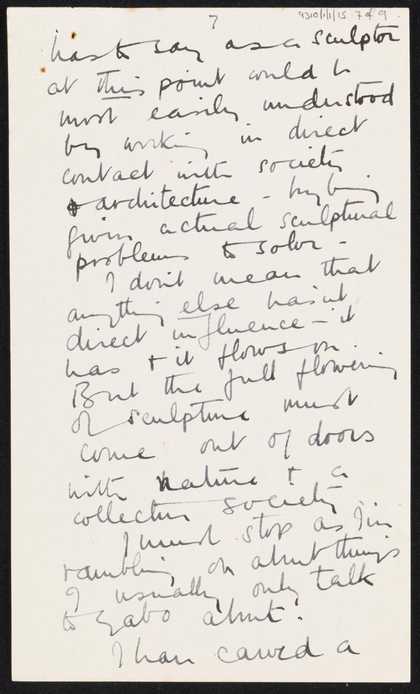 9310/1/1/15 7 of 9
7
has to say as a sculptor
at this point could be
most easily understood
by working in direct
contact with society
& architecture - by being
given actual sculptural
problems to solve -
I don't mean that
anything else hasn't
direct influence - it
has & it flows on.
But the full flowering
of sculpture must
come out of doors
with nature & a
collective society
I must stop as I'm
rambling on about things
I usually only talk
to Gabo about.
I have carved a